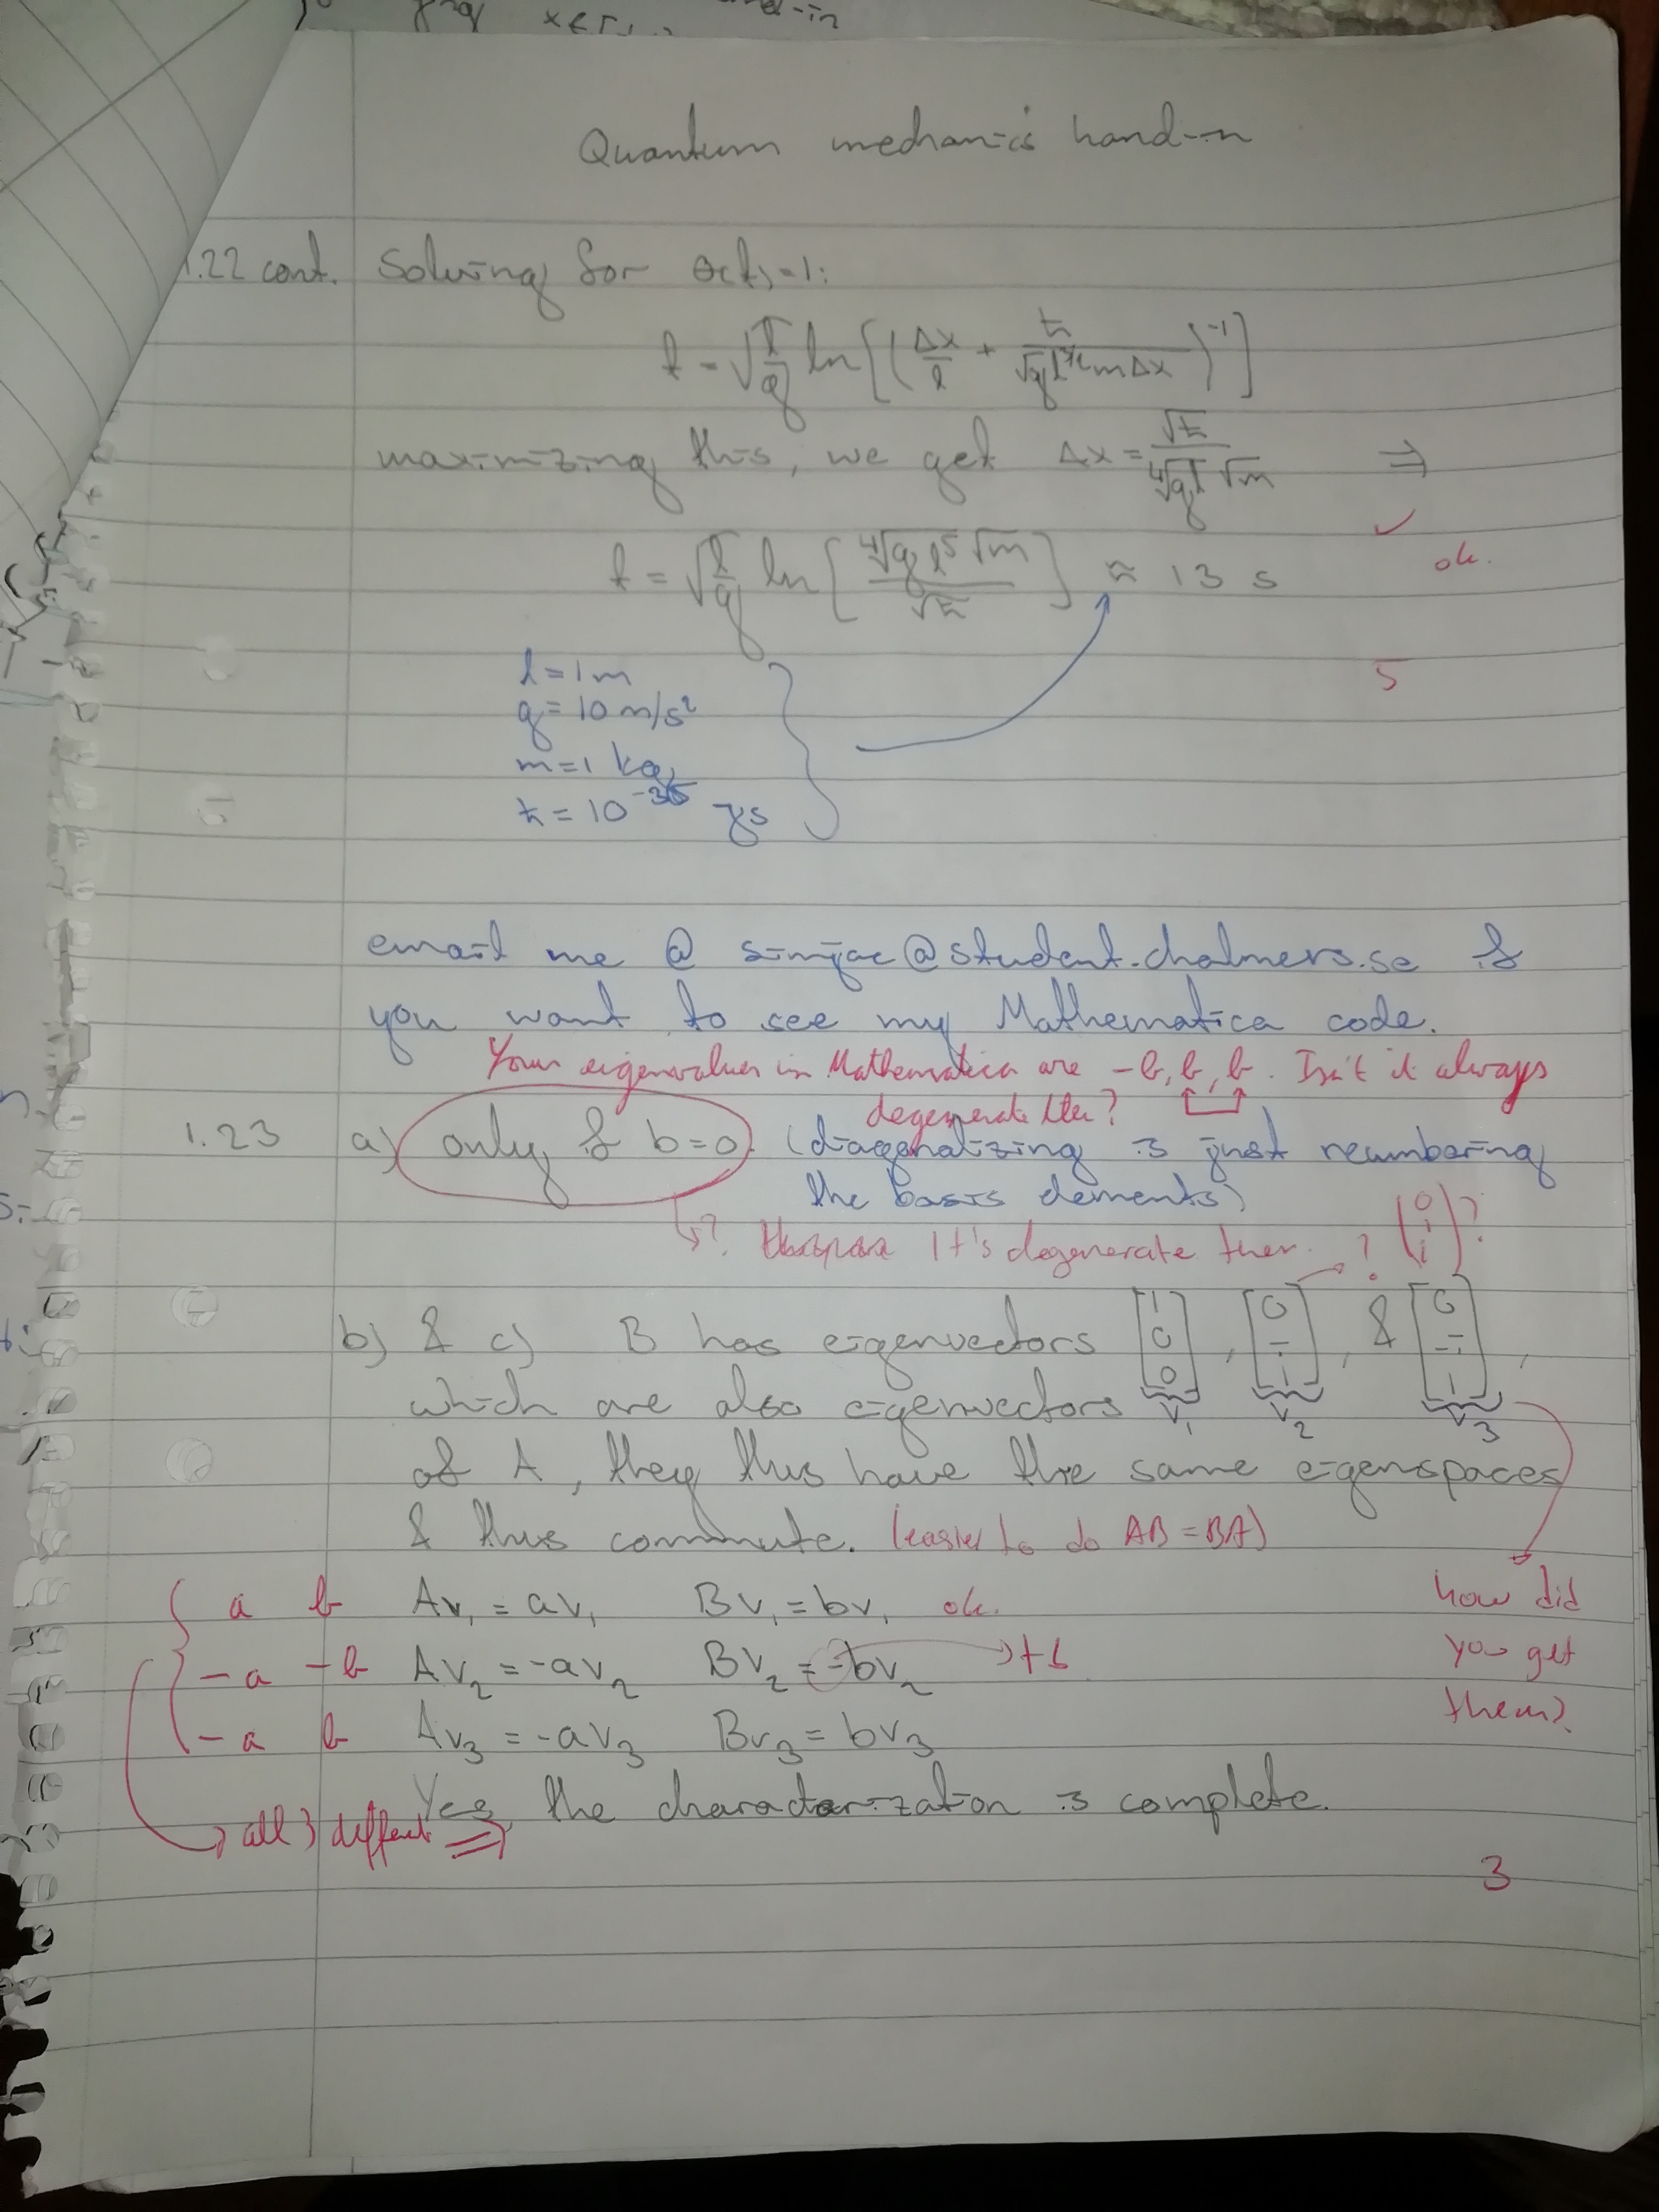 x ∈
Quantum mechanics hand-in
1.22 cont. Solving for θ(t)=1:
t = √(l/g) ln[(Δx/l + ħ/(√g l^(3/2) m Δx))^-1]
maximizing this, we get Δx = √ħ/(∜(g/l) √m) ⇒
✓
t = √(l/g) ln[∜(g l^5) √m / √ħ] ≈ 13 s
ok.
l = 1 m
5
g = 10 m/s²
m = 1 kg
ħ = 10^-35 Js
email me @ simjac@student.chalmers.se if
you want to see my Mathematica code.
Your eigenvalues in Mathematica are -b, b, b. Isn't it always
degenerate then?
1.23 a) only if b=0. (diagonalizing is just renumbering
the basis elements)
?. It's degenerate then. ? (0 i i)?
b) & c) B has eigenvectors [1 0 0], [0 i 1], & [0 -i 1],
v₁ v₂ v₃
which are also eigenvectors
of A, they thus have the same eigenspaces
& thus commute. (easier to do AB = BA)
a b Av₁ = av₁ Bv₁ = bv₁ ok. how did
-a -b Av₂ = -av₂ Bv₂ = -bv₂ → +b you get
them?
-a b Av₃ = -av₃ Bv₃ = bv₃
Yes, the characterization is complete.
→ all 3 different ⇒
3